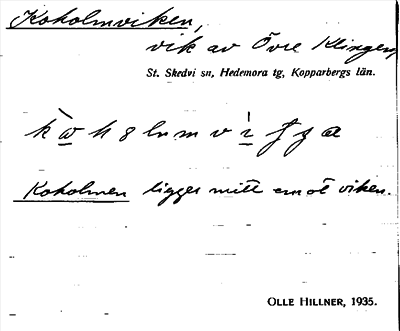 Kokolmviken,
vik av Övre Klingen,
St. Skedvi sn, Hedemora tg, Kopparbergs län.
Kokolmen ligger mitt emot viken.
OLLE HILLNER, 1935.